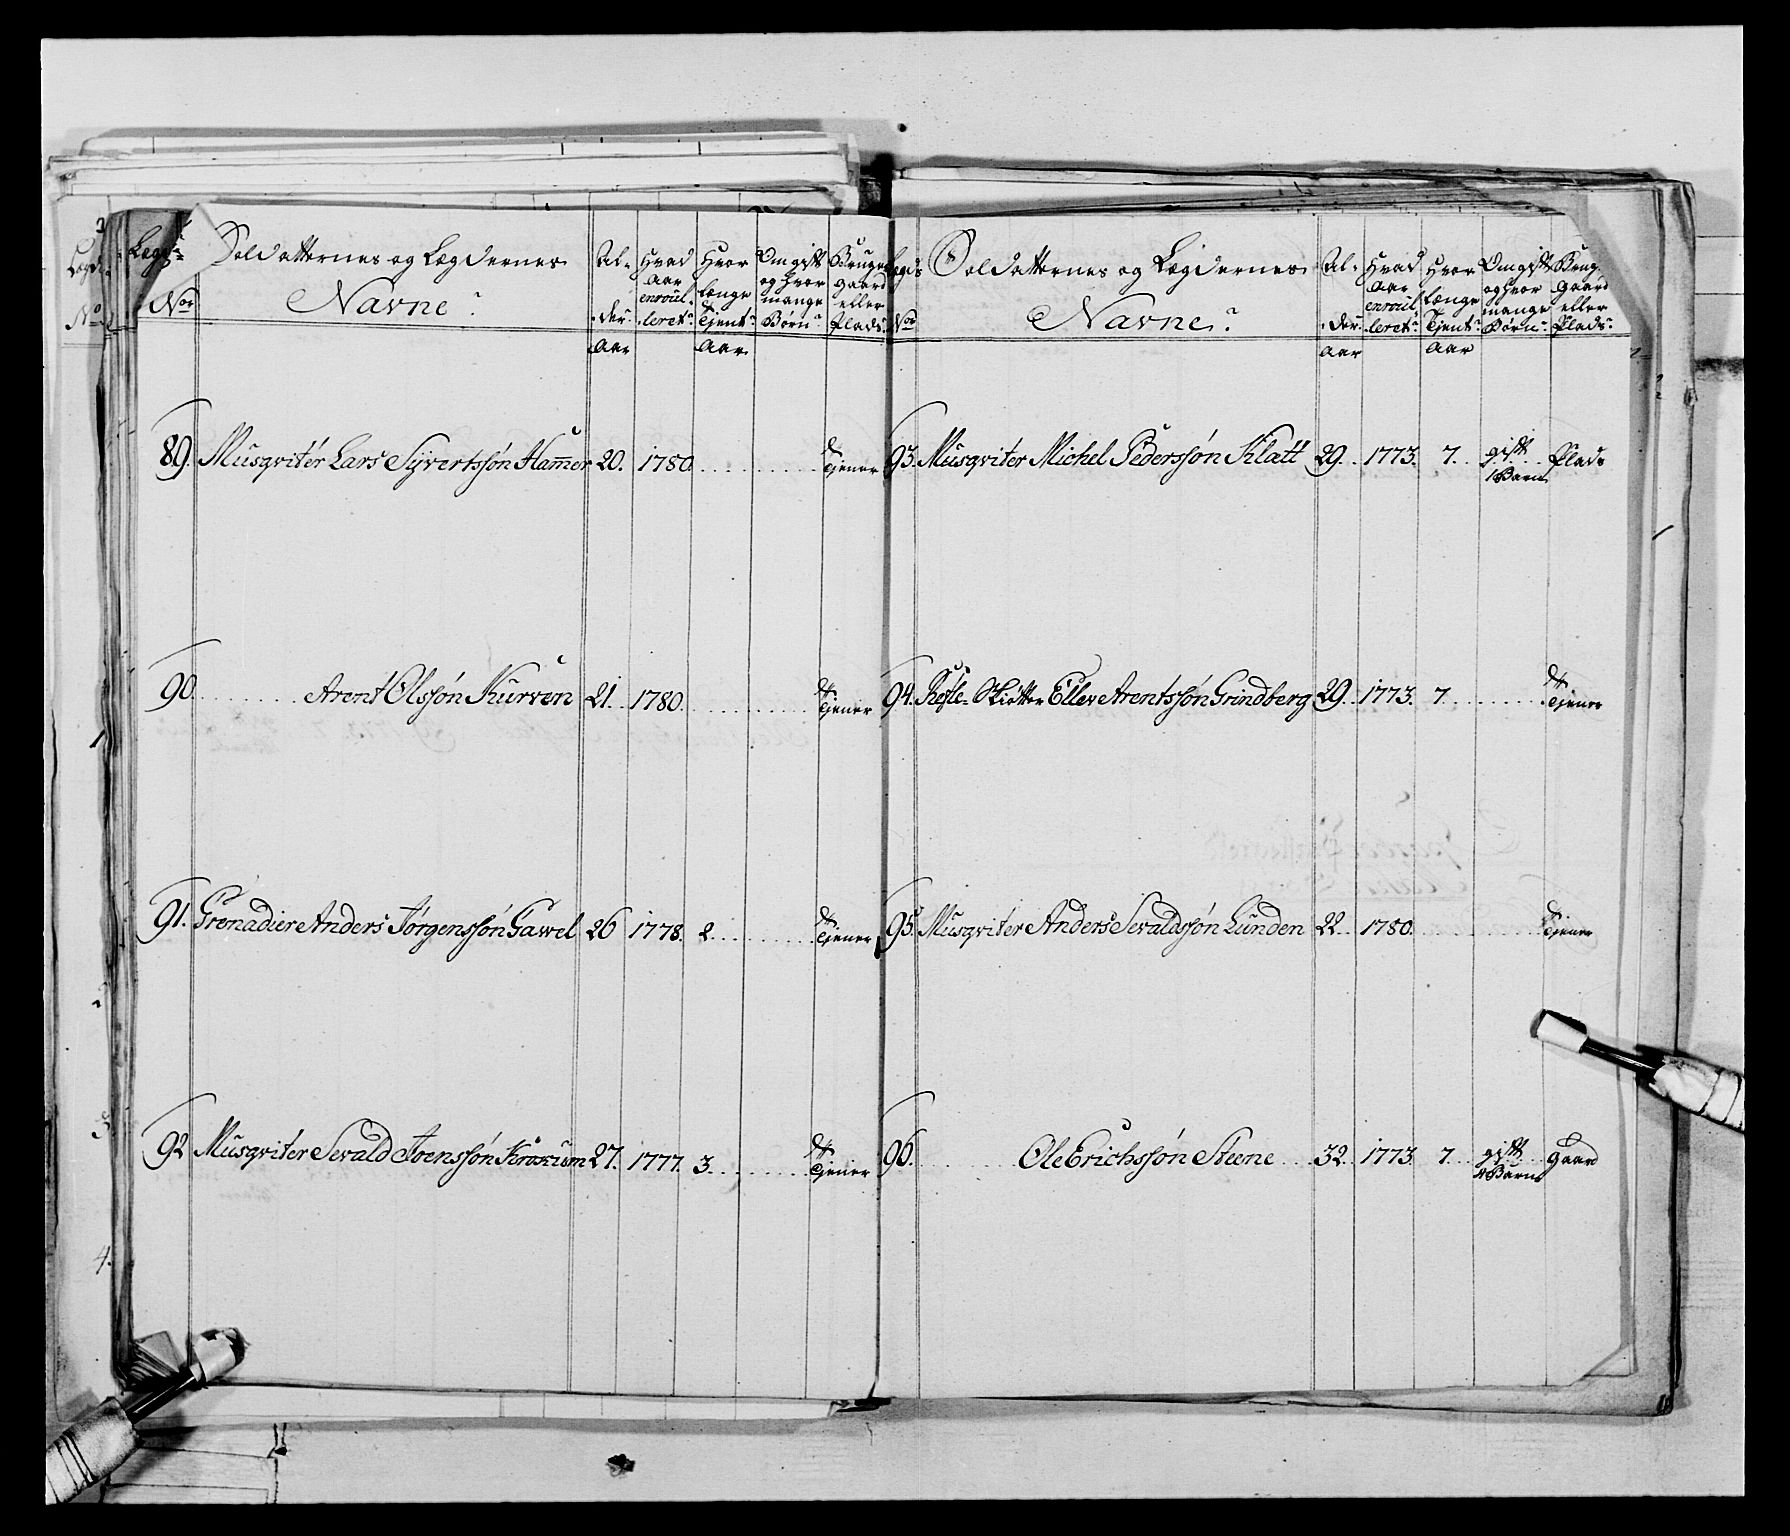 Legds Nor
Soldatternes og Lægdernes Navne
Al-der Aar
Hvad Aar enroul-leret
Hvor længe Tjent Aar
Om gift og hvor mange Børn
Bruger Gaard eller Plads
89. Musqvitér Lars Syvertssøn Hamer 20. 1780. Tjener
90. Arent Olssøn Kurven 21. 1780. Tjener
91. Grenadier Anders Jørgenssøn Gawel 26 1778. 2. Tjener
92 Musqviter Sevald Joenssøn 27. 1777. 3. Tjener
Legds Nor
Soldatternes og Lægdernes Navne
Al-der Aar
Hvad Aar enroul-leret
Hvor længe Tjent Aar
Om gift og hvor mange Børn
Brug Gaard eller Plads
93. Musqviter Michel Pederssøn Klatt 29. 1773. 7. gift 1 Barn Plads
94. Refle-Skiøtter Ellev Arentssøn Grindberg 29. 1773. 7. Tjener
95. Musqviter Anders Sevaldssøn Lunden 22. 1780. Tjener
96. Ole Erichssøn Steene 32. 1773. 7. gift 4 Barn Gaard